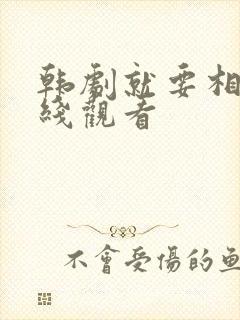 韩劇就要相
綫觀看
不會受傷的魚